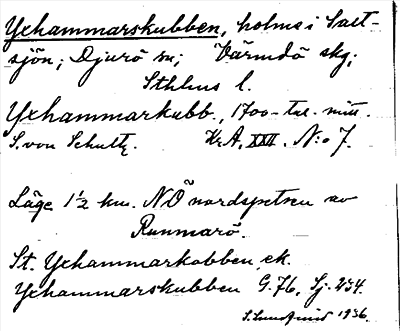 Yxhammarskubben, holme i Salt-
sjön; Djurö sn; Värmdö skg;
Sthlms l.
Yxhammarkubb., 1700-tal. mitt.
S. von Schultz. Kr.A. XXII. N:o 7.
Läge 1½ km. NÖ nordspetsen av
Runmarö.
St. Yxhammarkobben, ek.
Yxhammarskubben G. 76, Sj. 234.
1936.